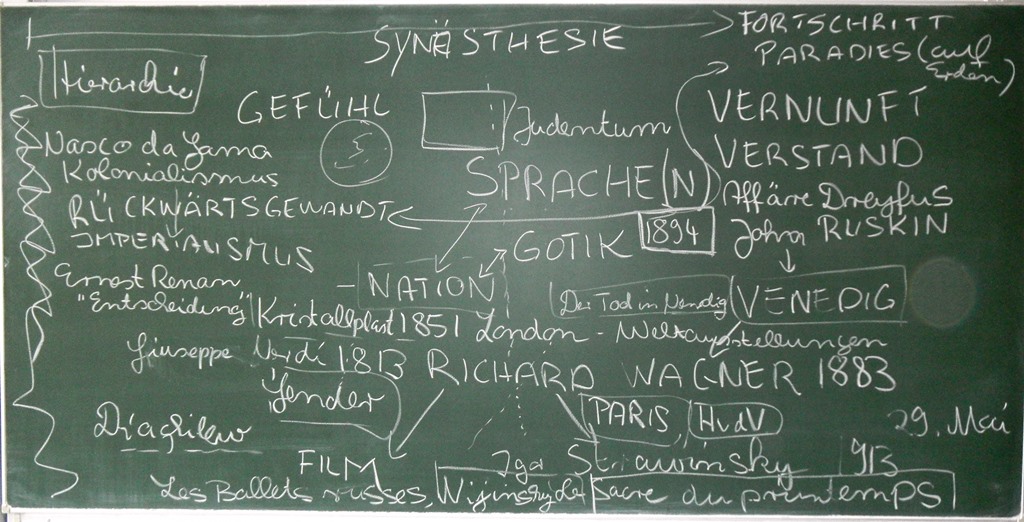 SYNÄSTHESIE
FORTSCHRITT
PARADIES (auf Erden)
Hierarchie
GEFÜHL
Judentum
VERNUNFT
Vasco da Gama
Kolonialismus
SPRACHE(N)
VERSTAND
RÜCKWÄRTSGEWANDT
Affäre Dreyfus
IMPERIALISMUS
GOTIK
1894
John RUSKIN
Ernest Renan
"Entscheidung"
- NATION
Der Tod in Venedig
VENEDIG
Kristallpalast 1851 London - Weltausstellungen
Giuseppe Verdi 1813 RICHARD WAGNER 1883
Gender
PARIS, HvdV
29. Mai
Diaghilew
FILM
Igor Strawinsky 1913
Les Ballets russes, Sacre du printemps